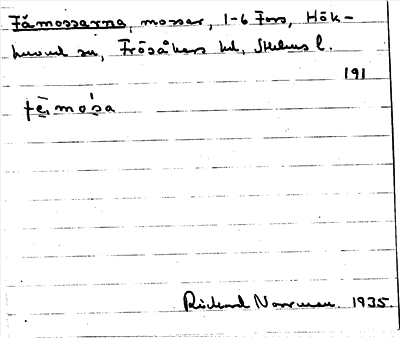 Fämossarna, mossar, 1-6 Fors, Hök-
huvud sn, Frösåkers hd, Sthlms l.
191
fè, mo̍sa
Rickard Norrman. 1935.